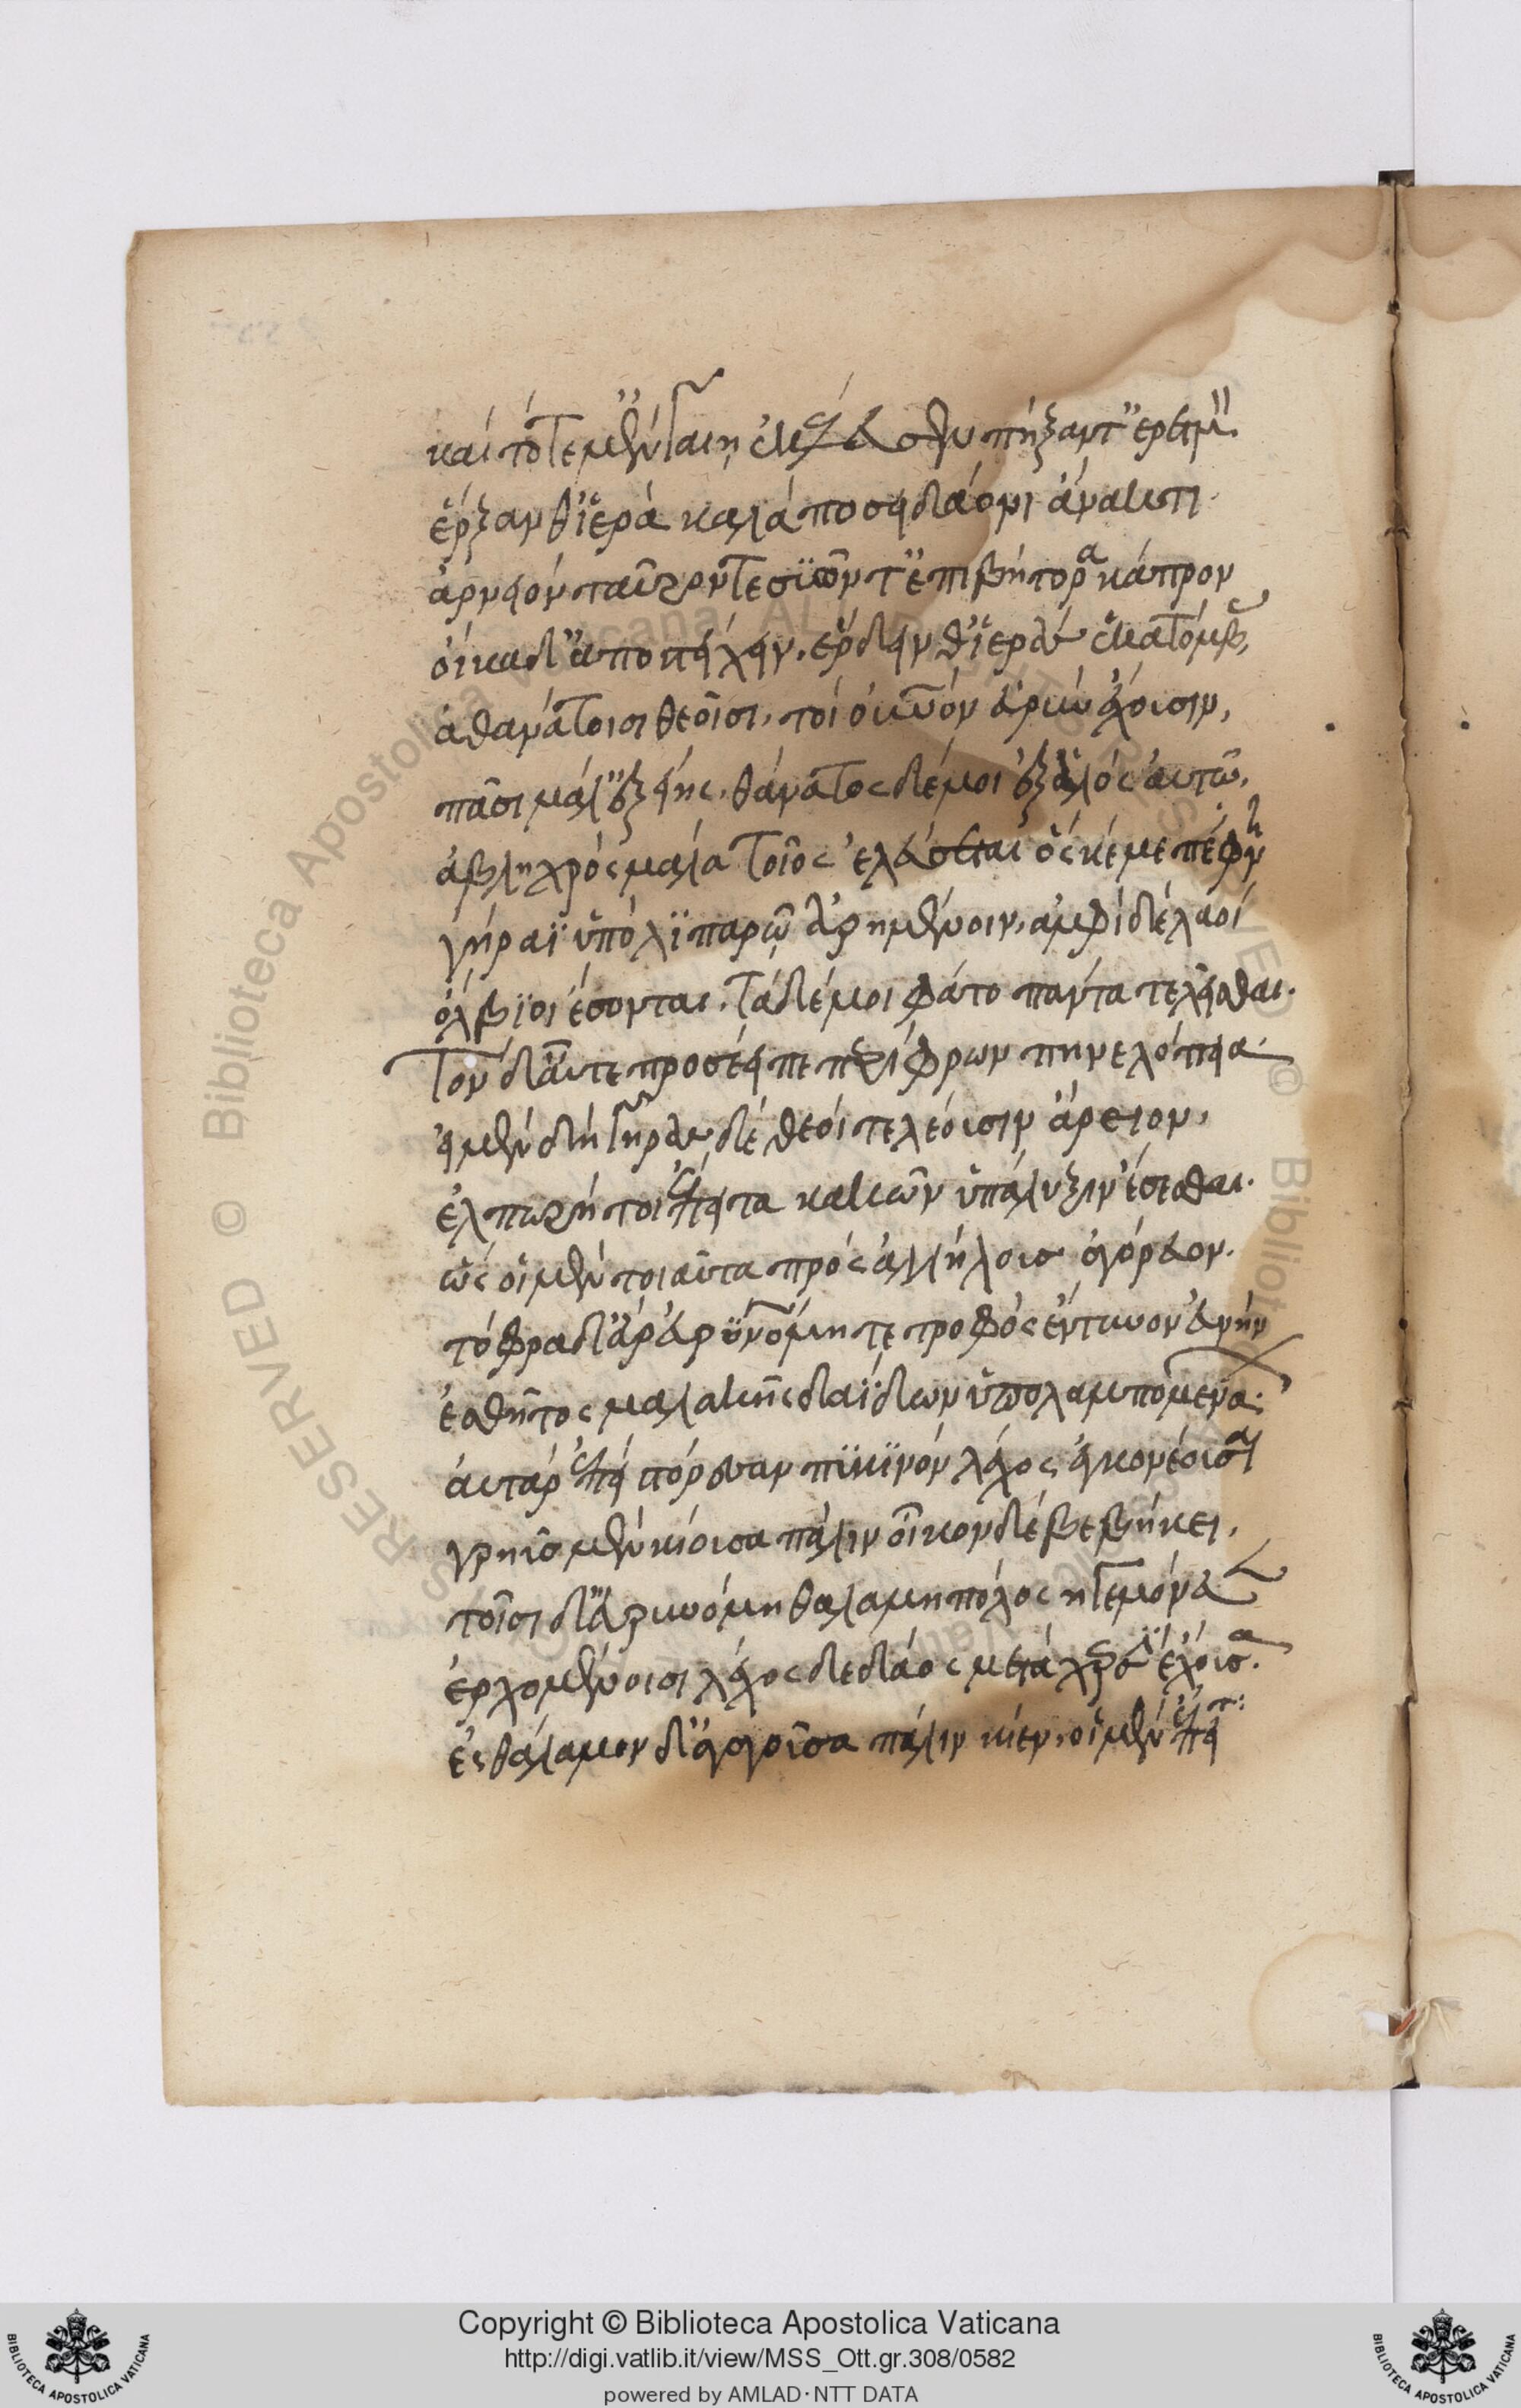 καὶ τότε μ' ἐν γαίῃ ἐκέλευσεν πήξαντ' ἐρετμὸν
ἔρξανθ' ἱερὰ καλὰ ποσειδάωνι ἄνακτι.
ἀρνειὸν ταῦρόν τε συῶν τ' ἐπιβήτορα κάπρον
οἴκαδ' ἀποστείχειν. ἔρδειν θ' ἱερὰς ἑκατόμβας,
ἀθανάτοισι θεοῖσι, τοὶ οὐρανὸν εὐρὺν ἔχουσιν,
πᾶσι μάλ' ἑξείης. θάνατος δέ μοι ἐξ ἁλὸς αὐτῷ,
ἀβληχρὸς μάλα τοῖος ἐλεύσεται ὅς κέ με πέφνῃ
γήραϊ ὕπο λιπαρῷ ἀρημένον. ἀμφὶ δὲ λαοὶ
ὄλβιοι ἔσονται. τὰ δέ μοι φάτο πάντα τελεῖσθαι.
Τὸν δ' αὖτε προσέειπε περίφρων πηνελόπεια.
εἰ μὲν δὴ γῆράς γε θεοὶ τελέουσιν ἄρειον,
ἐλπωρή τοι ἔπειτα κακῶν ὑπάλυξιν ἔσεσθαι.
ὣς οἱ μὲν τοιαῦτα πρὸς ἀλλήλους ἀγόρευον.
τόφρα δ' ἄρ' εὐρυνόμη τε τροφὸς ἔντυον εὐνὴν
ἐσθῆτος μαλακῆς δαΐδων ὑπολαμπομενάων.
αὐτὰρ ἐπεὶ στόρεσαν πυκινὸν λέχος ἐγκονέουσαι
γρηῢς μὲν κιοῦσα πάλιν οἶκον δὲ βεβήκει,
τοῖσι δ' εὐρυνόμη θαλαμηπόλος ἡγεμόνευεν
ἐρχομένοισι λέχος δὲ δάος μετὰ χερσὶν ἔχουσα.
ἐς θάλαμον δ' ἀγαγοῦσα πάλιν κίεν. οἱ μὲν ἔπειτα
Copyright © Biblioteca Apostolica Vaticana
http://digi.vatlib.it/view/MSS_Ott.gr.308/0582
powered by AMLAD·NTT DATA